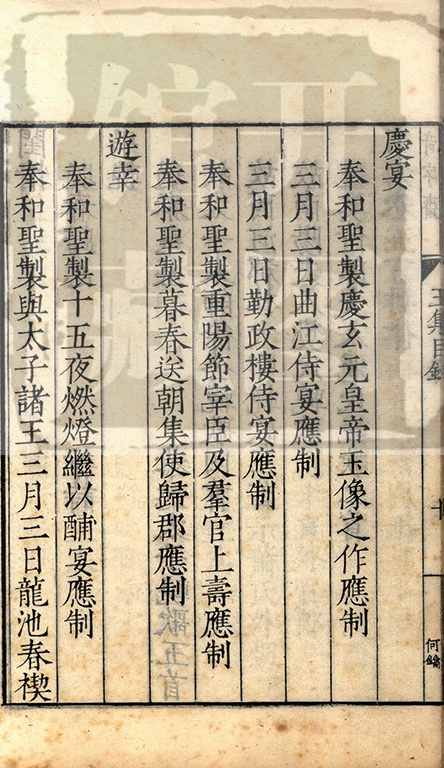 慶宴
奉和聖製慶玄元皇帝玉像之作應制
三月三日曲江侍宴應制
三月三日勤政樓侍宴應制
奉和聖製重陽節宰臣及羣官上壽應制
奉和聖製暮春送朝集使歸郡應制
遊幸
奉和聖製十五夜燃燈繼以酺宴應制
奉和聖製與太子諸王三月三日龍池春禊
何鑰